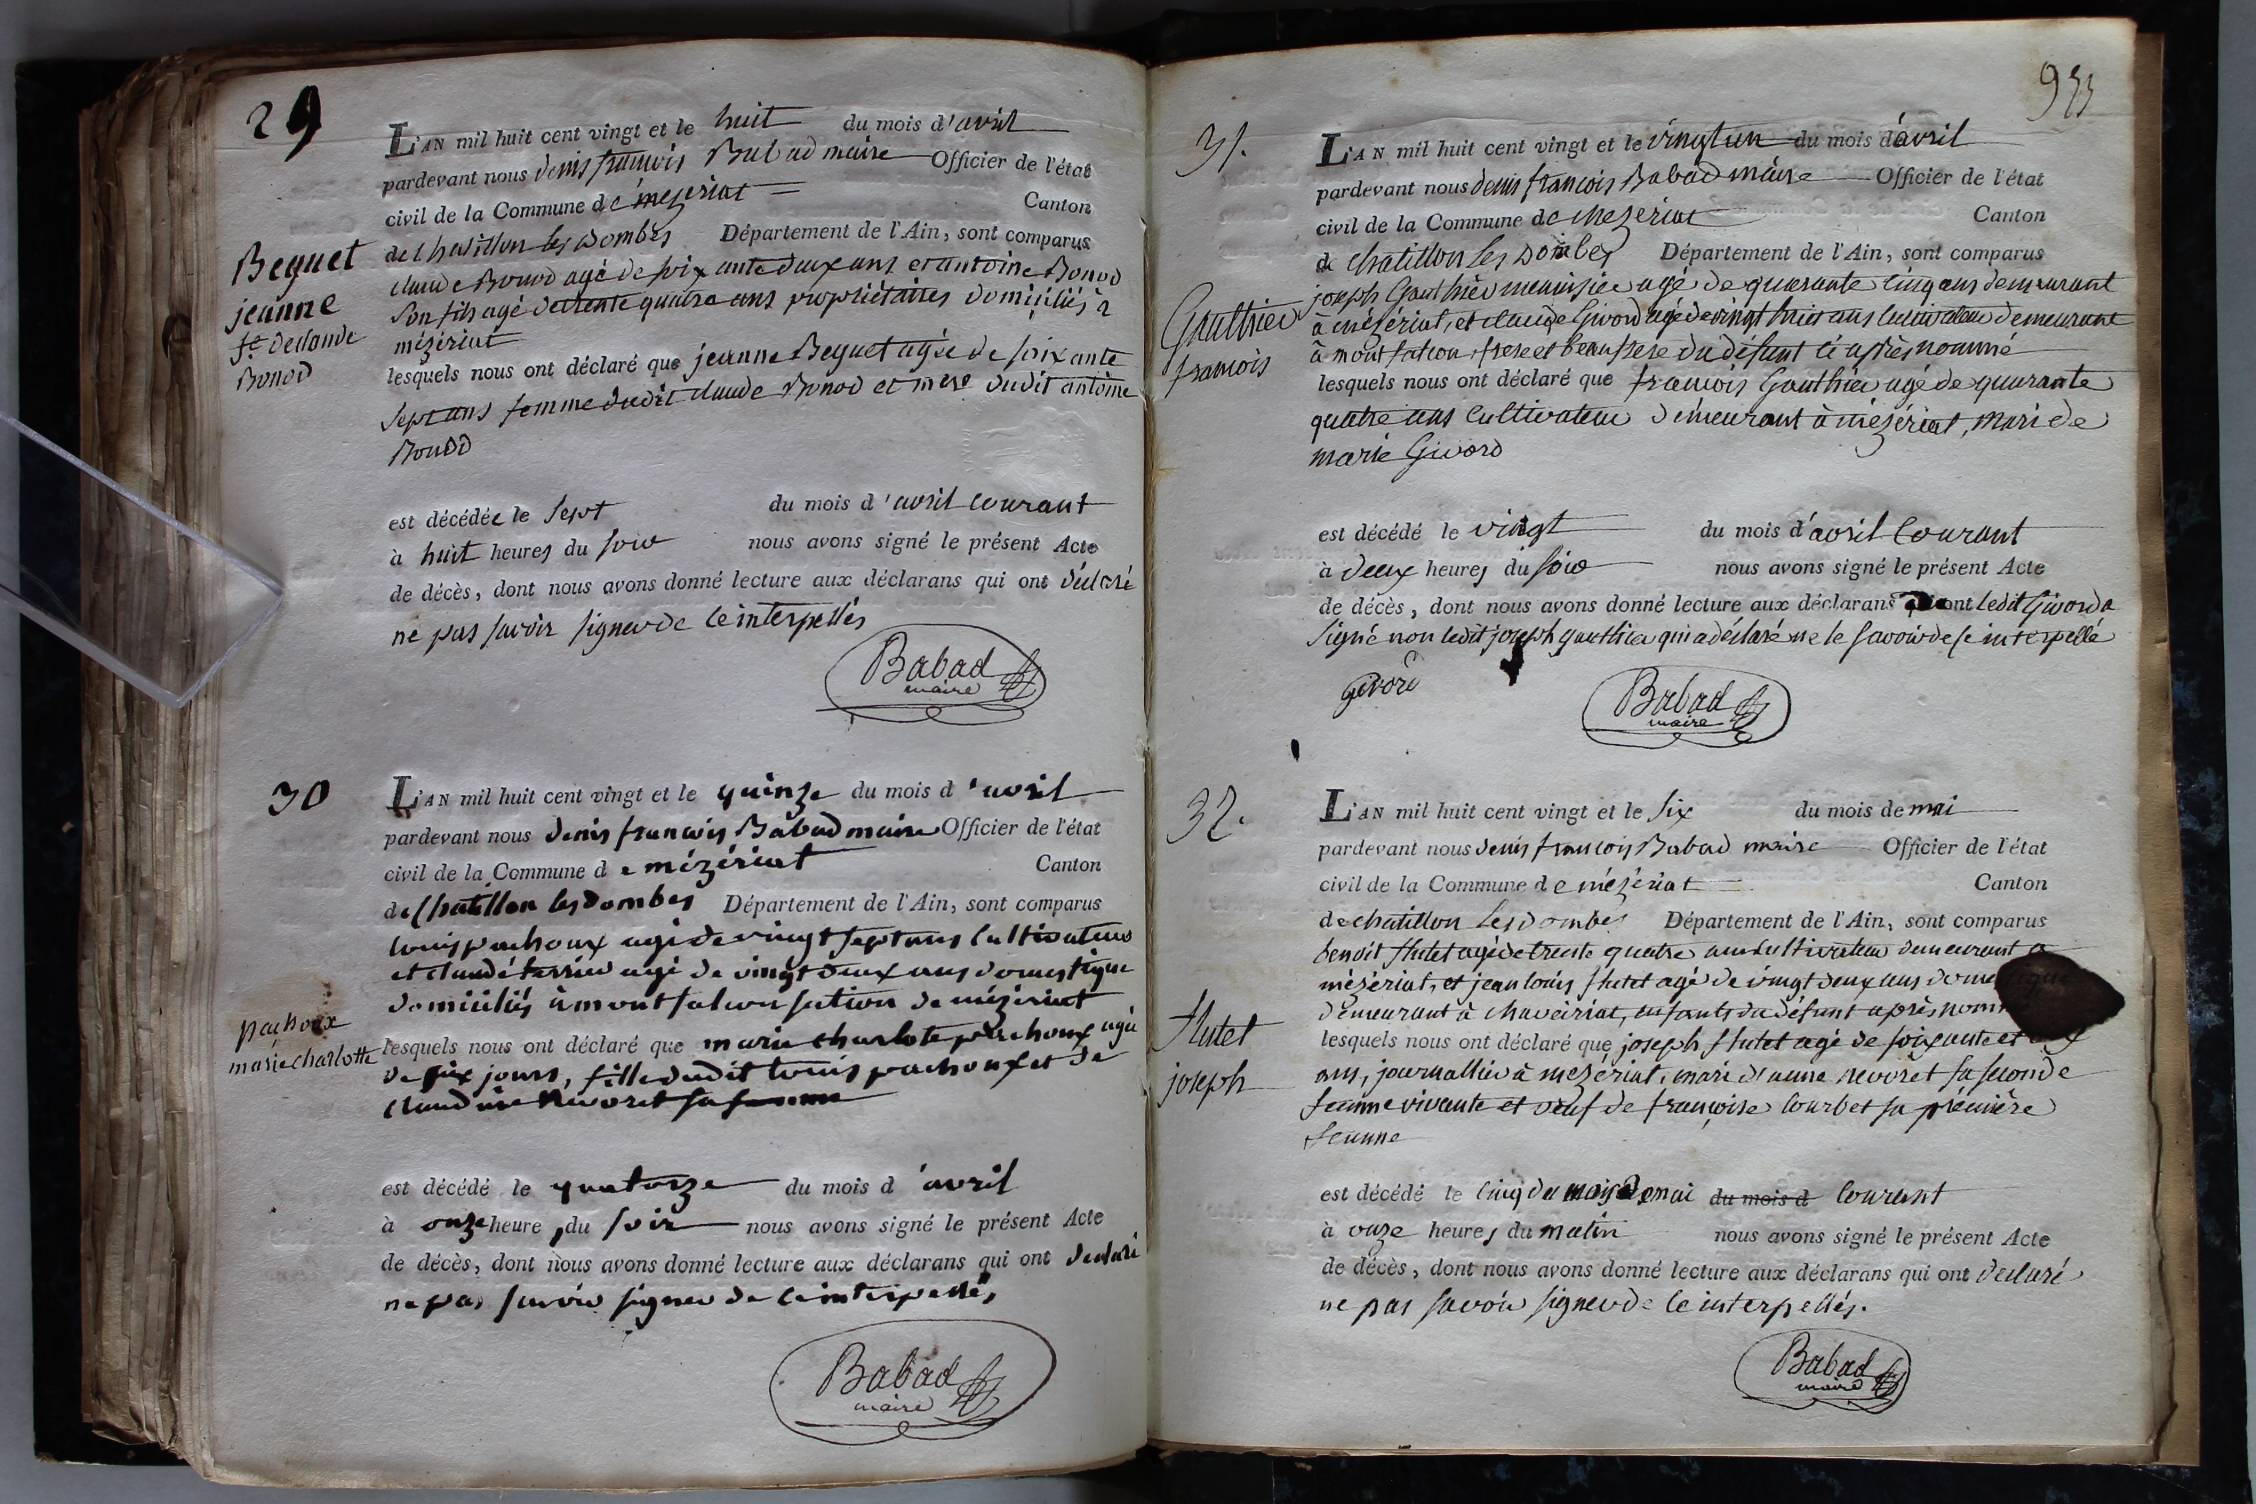 29
L'AN mil huit cent vingt et le huit du mois d'avril
pardevant nous denis françois Babad maire Officier de l'état
civil de la Commune de mezeriat Canton
de Chatillon les Dombes Département de l'Ain, sont comparus
claude Bonod agé de soixante deux ans et antoine Bonod
son fils agé de trente quatre ans propriétaires domiciliés à
mézériat
Beguet
jeanne
fe de claude
Bonod
lesquels nous ont déclaré que jeanne Beguet agée de soixante
sept ans femme dudit claude Bonod et mere dudit antoine
Bonod
est décédée le sept du mois d'avril courant
à huit heures du soir nous avons signé le présent Acte
de décès, dont nous avons donné lecture aux déclarans qui ont déclaré
ne pas savoir signer de ce interpellés
Babad
maire
30
L'AN mil huit cent vingt et le quinze du mois d'avril
pardevant nous denis françois Babad maire Officier de l'état
civil de la Commune de mézériat Canton
de Chatillon les Dombes Département de l'Ain, sont comparus
louis pachoux agé de vingt sept ans cultivateur
et claude terrier agé de vingt deux ans domestique
domiciliés à montfalcon section de mézériat
pachoux
marie charlotte
lesquels nous ont déclaré que marie charlote pachoux agée
de six jours, fille dudit louis pachoux et de
claudine Revoret sa femme
est décédé le quatorze du mois d'avril
à onze heures du soir nous avons signé le présent Acte
de décès, dont nous avons donné lecture aux déclarans qui ont declaré
ne pas savoir signer de ce interpellés
Babad
maire
933
31.
L'AN mil huit cent vingt et le vingt un du mois d'avril
pardevant nous denis françois Babad maire Officier de l'état
civil de la Commune de Mezeriat Canton
de chatillon Les Dombes Département de l'Ain, sont comparus
joseph Gauthier menuisier agé de quarante cinq ans demeurant
à mézériat, et claude Givord agé de vingt huit ans cultivateur demeurant
à montfalcon, frere et beaufrere du défunt ci après nommé
Gauthier
francois
lesquels nous ont déclaré que françois Gauthier agé de quarante
quatre ans Cultivateur demeurant à mézériat, Mari de
marie Givord
est décédé le vingt du mois d'avril Courant
à deux heures du soir nous avons signé le présent Acte
de décès, dont nous avons donné lecture aux déclarans ont ledit Givord a
signé non ledit joseph gauthier qui a déclaré ne le savoir de ce interpellé
givord
Babad
maire
32.
L'AN mil huit cent vingt et le six du mois de mai
pardevant nous denis françois Babad maire Officier de l'état
civil de la Commune de mézériat Canton
de chatillon Les Dombes Département de l'Ain, sont comparus
benoit flutet agé de trente quatre ans cultivateur demeurant a
mézériat, et jean louis flutet agé de vingt deux ans
demeurant à chaveiriat, enfants du défunt après
flutet
joseph
lesquels nous ont déclaré que joseph flutet agé de soixante et
ans, journallier à mezériat, mari d'anne revoret sa seconde
femme vivante et veuf de françoise Courbet sa première
femme
est décédé le cinq du mois de mai du mois d courant
à onze heures du matin nous avons signé le présent Acte
de décès, dont nous avons donné lecture aux déclarans qui ont declaré
ne pas savoir signer de ce interpellés.
Babad
maire